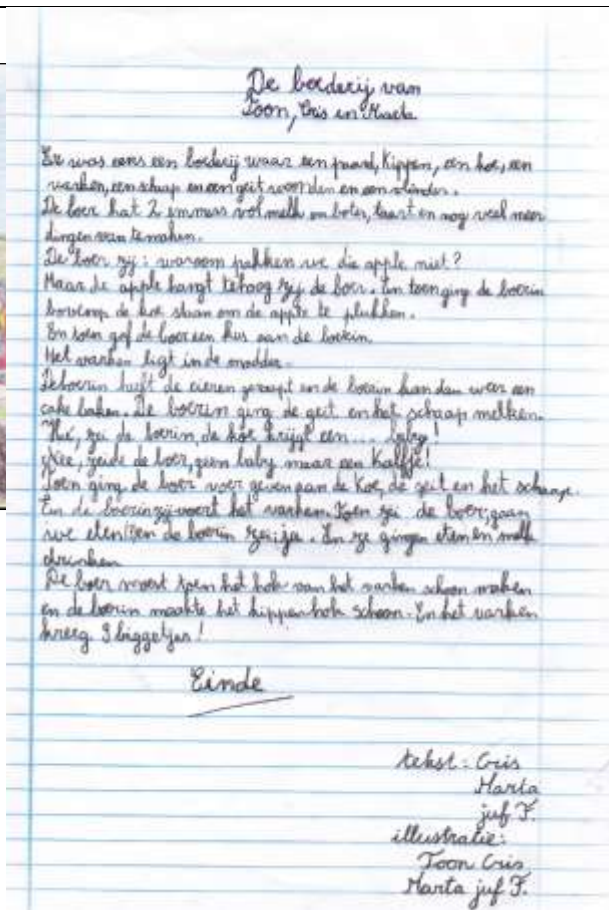 De boederij van
Toon, Cris en Marta
Er was eens een boederij waar een paard, Kippen, een koe, een
varken, een schaap en een geit woonden en een vlinder.
De boer hat 2 emmers vol melk om boter, taart en nog veel meer
dingen van te maken.
De boer zij: waroom pakken we die apple niet?
Maar de apple hangt te hoog zij de boer. En toen ging de boerin
bovenop de koe staan om de apple te plukken.
En toen gaf de boer een kus aan de boerin.
Het varken ligt in de modder.
De boerin heeft de eieren geraapt en de boerin kan dan weer een
cake baken. De boerin ging de geit en het schaap melken.
Hé, zei de boerin, de koe krijgt een... baby!
Nee, zeide de boer, geen baby maar een Kalfje!
Toen ging de boer voer geven aan de Koe, de geit en het schaap.
En de boerin zij voert het varken. Toen zei de boer, gaan
we eten? en de boerin zei: ja. En ze gingen eten en melk
drinken.
De boer moest toen het hok van het varken schoon maken
en de boerin maakte het kippenhok schoon. En het varken
kreeg 9 biggetjes!
Einde
tekst: Cris
Marta
juf F.
illustratie:
Toon Cris
Marta juf F.